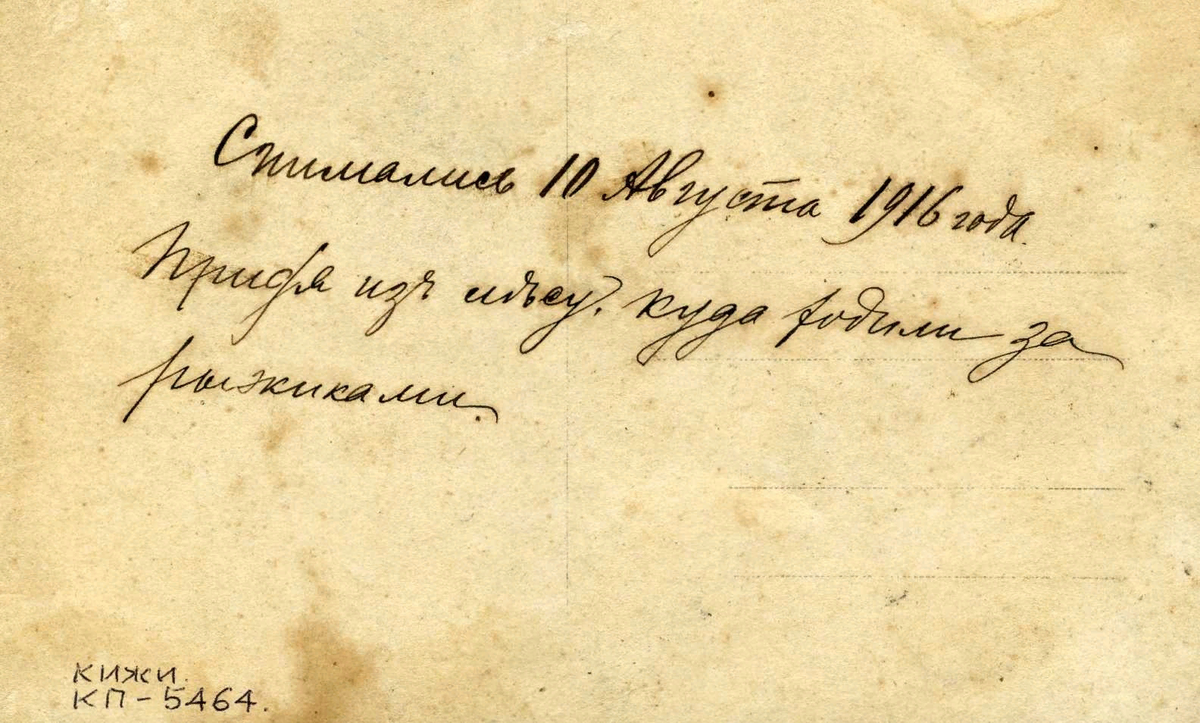 Снимались 10 Августа 1916 года.
Прийдя изъ лѣсу, куда ходили за
рыжиками.
КИЖИ.
КП-5464.